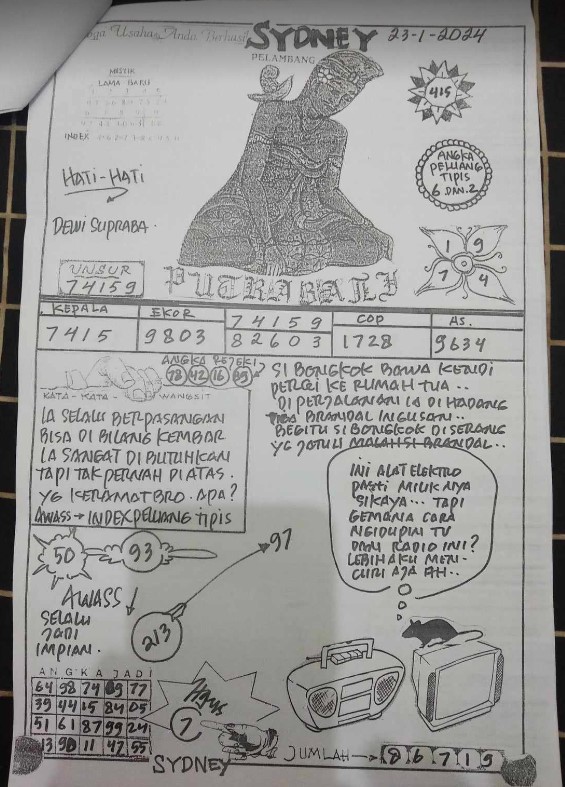 Usaha Anda Berhasil
SYDNEY
23-1-2024
PELAMBANG
MISTIK
LAMA BARU
INDEX
415
HATI-HATI
ANGKA
PELUANG
TIPIS
6 DAN.2
DEWI SUPRABA.
UNSUR
74159
1 9
7 4
PUTRA BALI
KEPALA
EKOR
74159
COP
AS.
7415
9803
82603
1728
9634
ANGKA REJEKI
78 42 16 39
KATA-KATA
WANGSIT
SI BONGKOK BAWA KENDI
PERGI KE RUMAH TUA..
DI PERJALANAN IA DI HADANG
TIBA BRANDAL INGUSAN..
BEGITU SI BONGKOK DI SERANG
YG JATUH MALAH SI BRANDAL..
IA SELALU BERPASANGAN
BISA DI BILANG KEMBAR
IA SANGAT DI BUTUHKAN
TAPI TAK PERNAH DI ATAS.
YG KERAMAT BRO. APA?
AWASS → INDEX PELUANG TIPIS
INI ALAT ELEKTRO
PASTI MILIKNYA
SIKAYA... TAPI
GEMANA CARA
NGIDUPIN TV
DAN RADIO INI?
LEBIH AKU MEN-
CURI AJA AH..
50
93
97
AWASS
SELALU
JADI
IMPIAN.
213
ANGKA JADI
64 98 74 09 77
39 44 15 84 05
51 61 87 99 24
13 90 11 42 55
7
SYDNEY
JUMLAH → 8 6 7 1 9